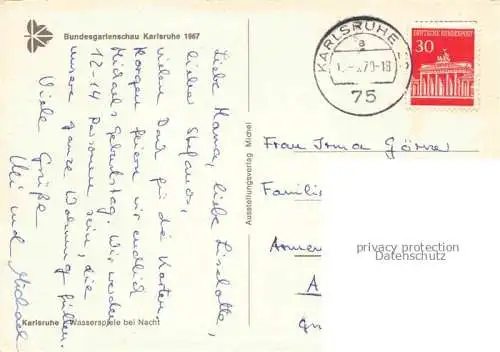 Bundesgartenschau Karlsruhe 1967
Liebe Mama, liebe Liselotte,
lieber Stefanos,
vielen Dank für die Karten.
Morgen feiern wir endlich
Michaels Geburtstag. Wir werden
12-14 Personen sein, die
unsere ganze Wohnung füllen.
Viele Grüße
und Michael
Karlsruhe Wasserspiele bei Nacht
Ausstellungsverlag Michel
KARLSRUHE
a
75
DEUTSCHE BUNDESPOST
30
Frau Irma Görner
Famili
privacy protection
Datenschutz